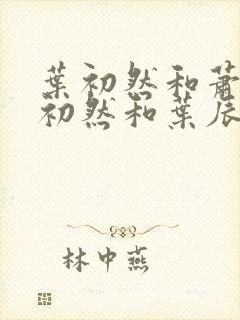 葉初然和蕭
初然和葉辰
林中燕